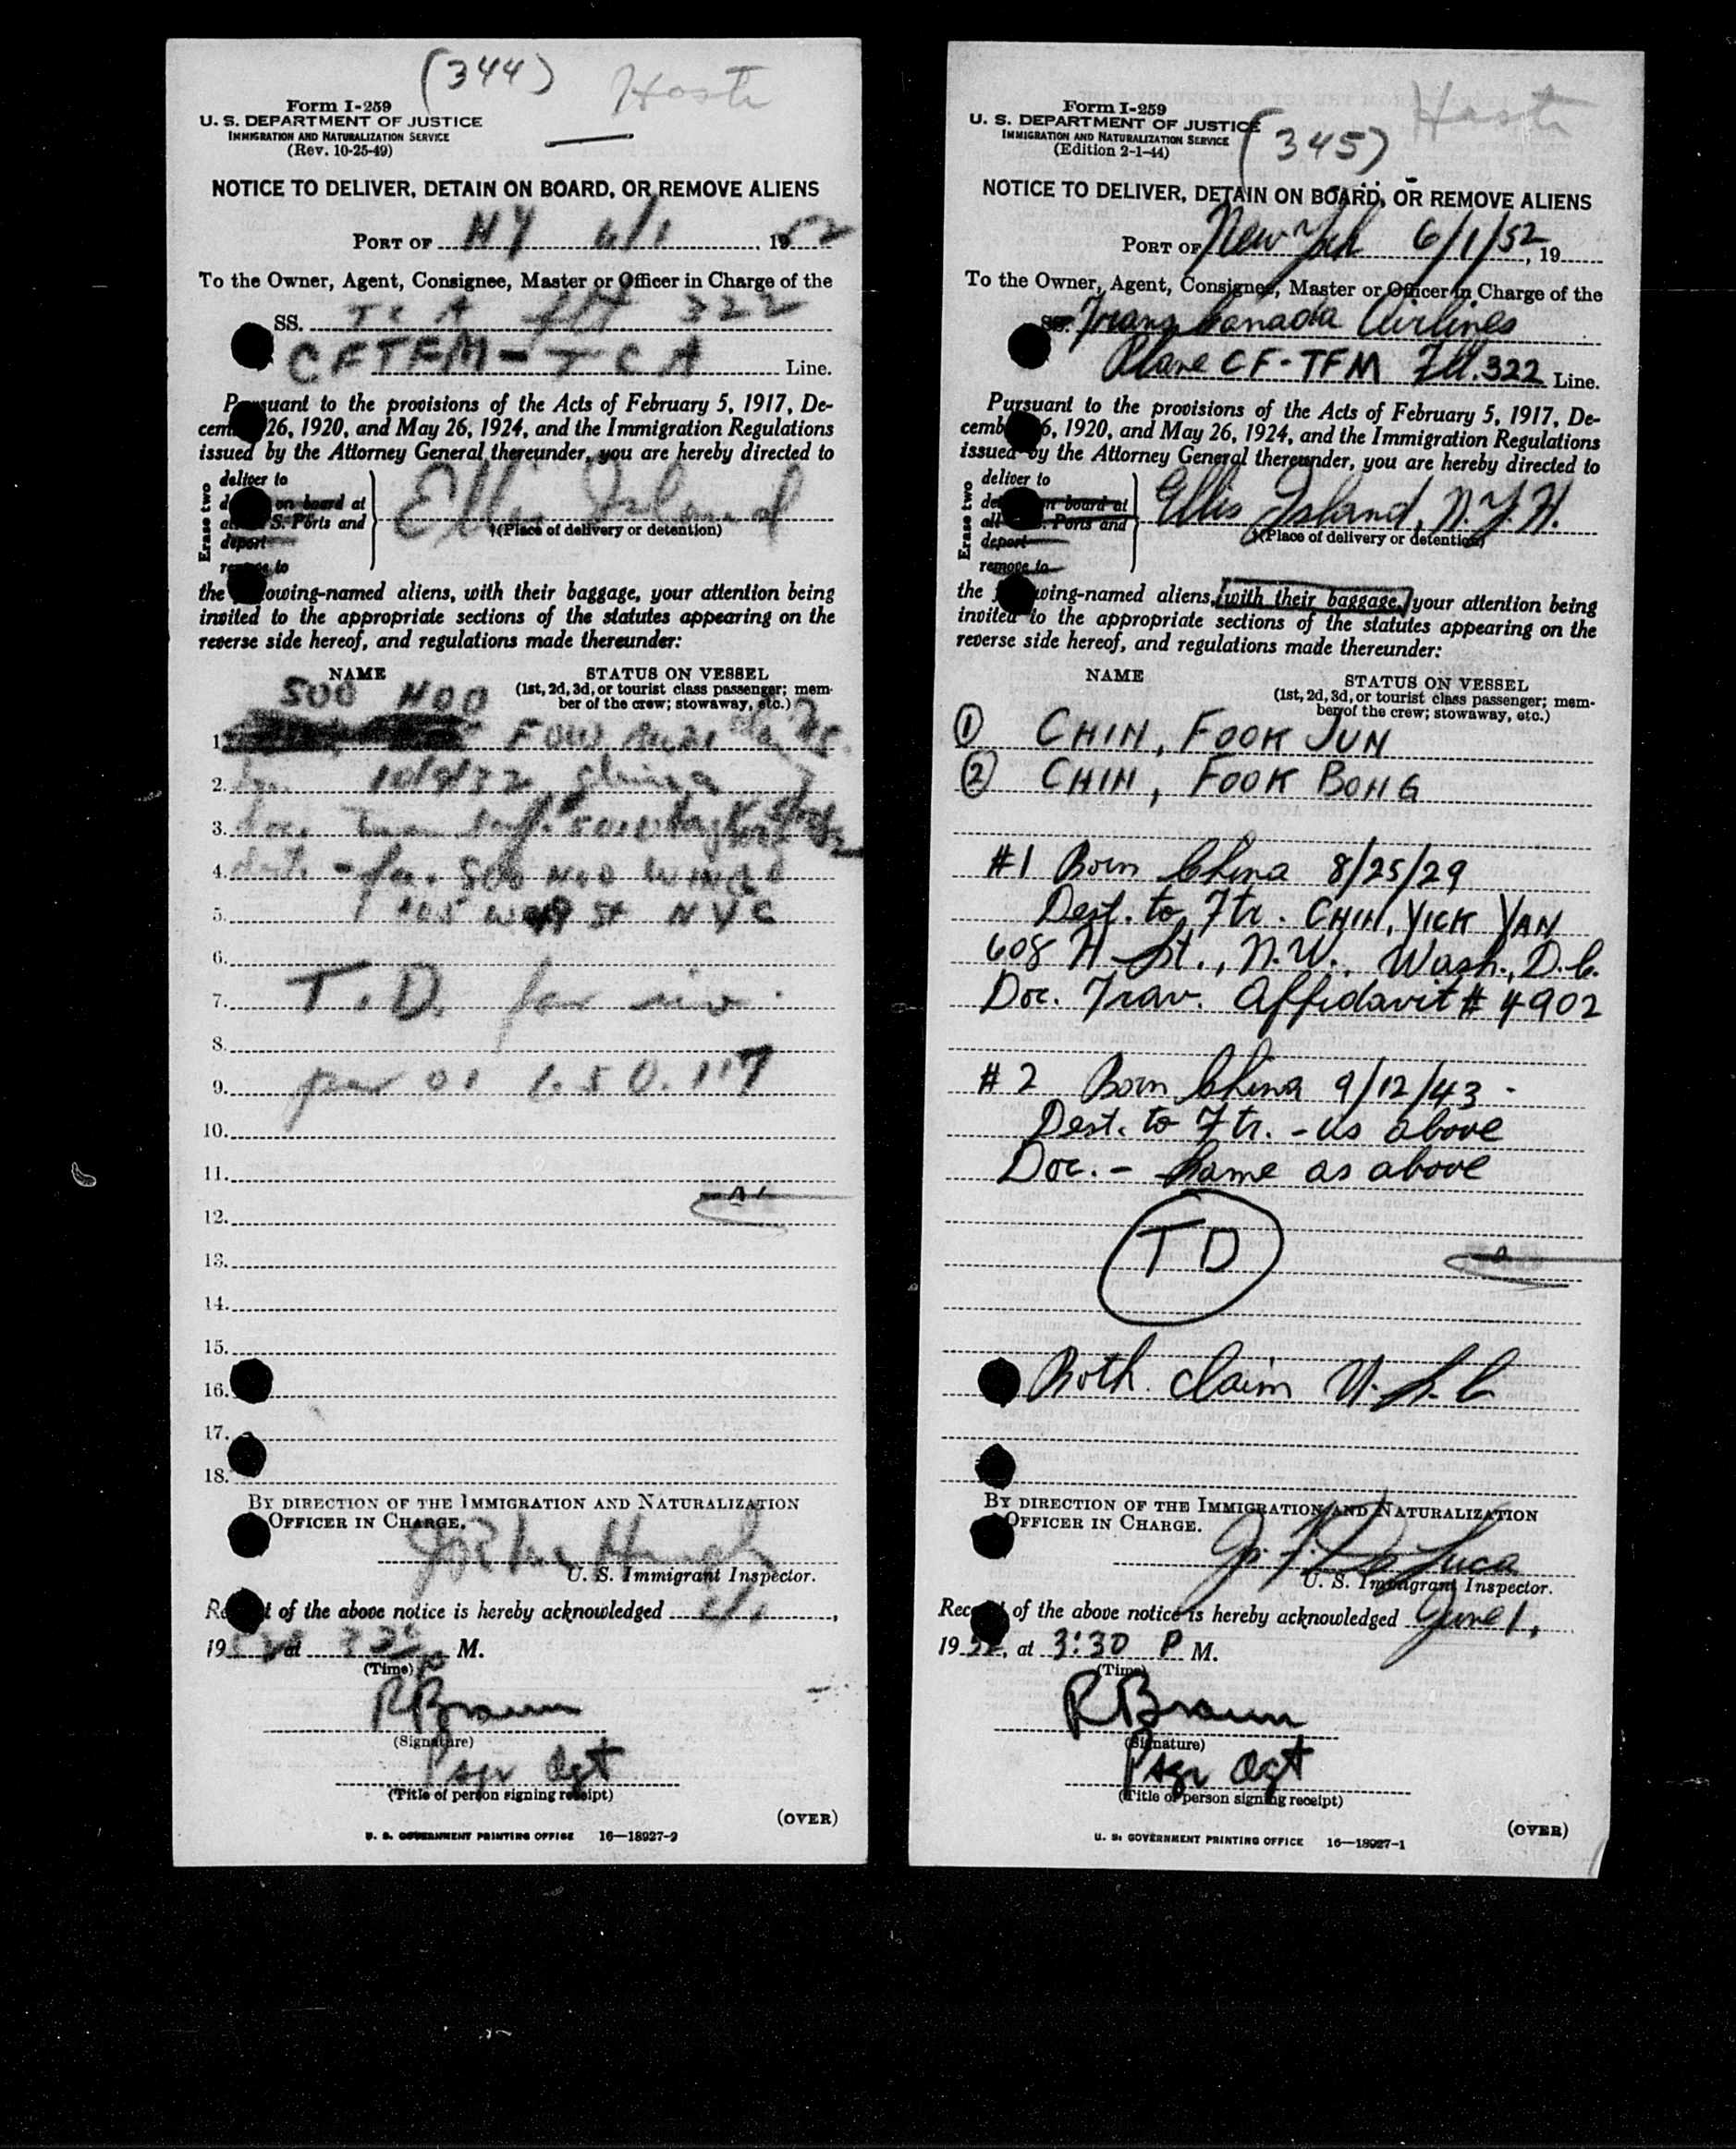 (344)
Form I-259
U. S. DEPARTMENT OF JUSTICE
IMMIGRATION AND NATURALIZATION SERVICE
(Rev. 10-25-49)
NOTICE TO DELIVER, DETAIN ON BOARD, OR REMOVE ALIENS
PORT OF NY 6/1, 1952
To the Owner, Agent, Consignee, Master or Officer in Charge of the
SS. TCA flt 322
CFTFM - TCA Line.
Pursuant to the provisions of the Acts of February 5, 1917, De-
cember 26, 1920, and May 26, 1924, and the Immigration Regulations
issued by the Attorney General thereunder, you are hereby directed to
Erase two
deliver to
on board at
S. Ports and
deport
remove to
Ellis Island
(Place of delivery or detention)
the following-named aliens, with their baggage, your attention being
invited to the appropriate sections of the statutes appearing on the
reverse side hereof, and regulations made thereunder:
NAME
STATUS ON VESSEL
(1st, 2d, 3d, or tourist class passenger; mem-
ber of the crew; stowaway, etc.)
SOO HOO
1. FOW
2. 10/9/32 China
3. doc.
4. SOO HOO WING
5. St NYC
6.
7. T.D. for
8.
9. par
10.
11.
12.
13.
14.
15.
16.
17.
18.
BY DIRECTION OF THE IMMIGRATION AND NATURALIZATION
OFFICER IN CHARGE.
U. S. Immigrant Inspector.
Receipt of the above notice is hereby acknowledged 6/1,
1952 at 3 30 P M.
(Time)
R Braun
(Signature)
Psgr Agt
(Title of person signing receipt)
(OVER)
U. S. GOVERNMENT PRINTING OFFICE 16—18927-2
(345)
Form I-259
U. S. DEPARTMENT OF JUSTICE
IMMIGRATION AND NATURALIZATION SERVICE
(Edition 2-1-44)
NOTICE TO DELIVER, DETAIN ON BOARD, OR REMOVE ALIENS
PORT OF New York 6/1/52, 19
To the Owner, Agent, Consignee, Master or Officer in Charge of the
SS. Trans Canada Airlines
Plane CF-TFM Flt. 322 Line.
Pursuant to the provisions of the Acts of February 5, 1917, De-
cember 26, 1920, and May 26, 1924, and the Immigration Regulations
issued by the Attorney General thereunder, you are hereby directed to
Erase two
deliver to
detain on board at
all U. S. Ports and
deport
remove to
Ellis Island, N.Y.H.
(Place of delivery or detention)
the following-named aliens, with their baggage, your attention being
invited to the appropriate sections of the statutes appearing on the
reverse side hereof, and regulations made thereunder:
NAME
STATUS ON VESSEL
(1st, 2d, 3d, or tourist class passenger; mem-
ber of the crew; stowaway, etc.)
① CHIN, FOOK JUN
② CHIN, FOOK BONG
#1 Born China 8/25/29
Dest. to Ftr. CHIN, YICK YAN
608 H St., N.W. Wash., D.C.
Doc. Trav. Affidavit # 4902
#2 Born China 9/12/43 -
Dest. to Ftr. - as above
Doc. - Same as above
TD
Both claim U.S.C
BY DIRECTION OF THE IMMIGRATION AND NATURALIZATION
OFFICER IN CHARGE.
De Luca
U. S. Immigrant Inspector.
Receipt of the above notice is hereby acknowledged June 1,
1952, at 3:30 P M.
(Time)
R Braun
(Signature)
Psgr Agt
(Title of person signing receipt)
(OVER)
U. S. GOVERNMENT PRINTING OFFICE 16—18927-1